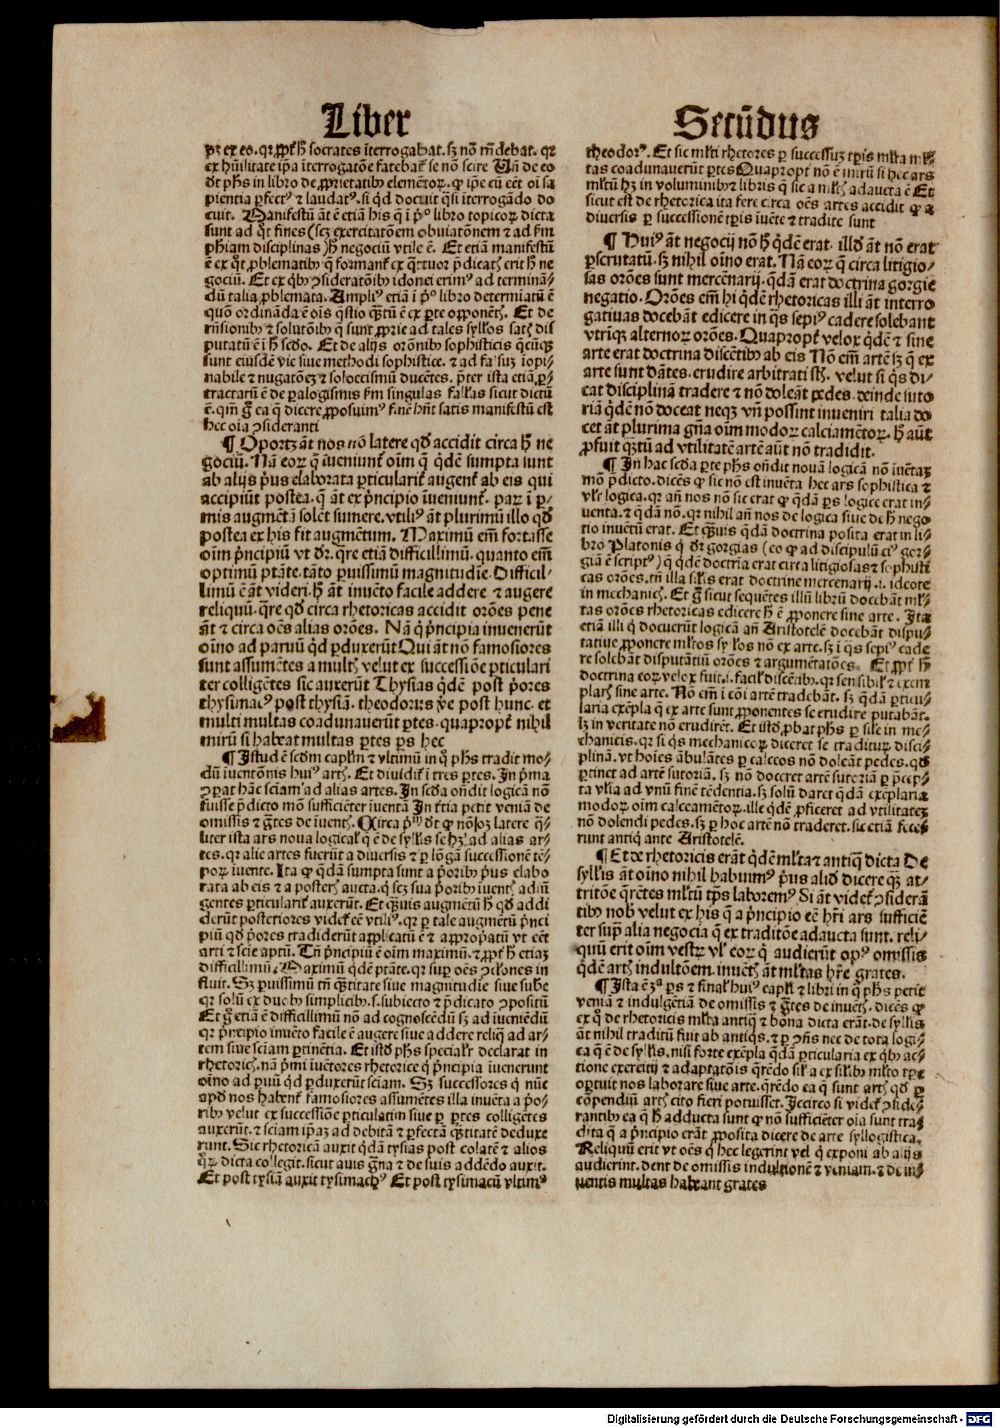 Liber
pꝫ ex eo. qꝛ ꝓpt̉ h̄ socrates īterrogabat. sꝫ nō rn̄debat. qꝛ
ex hūilitate ip̄a īterrogatōe fatebat᷑ se nō scire Vn̄ de eo
dt̄ ph̄s in libro de ꝓprietatibꝰ elemētoꝝ. ꝙ ip̄e cū eēt oī sa
pientia ꝑfectꝰ ⁊ laudatꝰ. si qd̄ docuit qͣsi īterrogādo do
cuit. Manifestū āt ē etiā his q̄ ī pͦ libro topicoꝝ dicta
sunt ad qͦt fines (scꝫ exercitatōem obuiatōnem ⁊ ad ẜm
ph̄iam disciplinas) h̄ negociū vtile ē. Et etiā manifestū
ē ex qͦt ꝓblematibꝰ q̄ formant᷑ ex qͣtuor p̄dicatis erit h̄ ne
gociū. Et ex qͥbꝰ ꝯsideratōibꝰ idonei erimꝰ ad terminā⸗
dū talia ꝓblemata. Ampliꝰ etiā ī pͦ libro determīatū ē
quō ordināda ē oīs q̄stio qͣtū ē ex ꝑte opponētis. Et de
rn̄sionibꝰ ⁊ solutōibꝰ q̄ sunt ꝓprie ad tales syllōs satis dis
putatū ē ī h̄ scd̄o. Et de alijs orōnibꝰ sophisticis q̄cūqꝫ
sunt eiusdē vie siue methodi sophistice. ⁊ ad falsuꝫ īopi⸗
nabile ⁊ nugatōeꝫ ⁊ soloecismū ducētes. p̄ter ista etiā ꝑ⸗
tractatū ē de ꝑalogismis ẜm singulas fallās sicut dictū
ē. qm̄ g̊ ea q̄ dicere ꝓposuimꝰ finē hn̄t satis manifestū est
hec oīa ꝯsideranti
¶ Oportꝫ āt nos nō latere qd̓ accidit circa h̄ ne
gociū. Nā eoꝝ q̄ īueniunt᷑ oīm q̄ qͥdē sumpta sunt
ab alijs pͥus elaborata ꝑticularit̓ augent᷑ ab eis qui
accipiūt postea. q̄ āt ex pͥncipio īueniunt᷑. paꝝ ī pͥ⸗
mis augmētā solēt sumere. vtiliꝰ āt plurimū illo qd̓
postea ex his fit augmētum. Maximum em̄ fortasse
oīm pͥncipiū vt dr̄. qͣre etiā difficillimū. quanto em̄
optimū ptāte. tāto ꝑuissimū magnitudīe. Difficil⸗
limū ē āt videri. h̄ āt inuēto facile addere ⁊ augere
reliquū. qͣre qd̓ circa rhetoricas accidit orōes pene
āt ⁊ circa oēs alias orōes. Nā qͥ pͥncipia inuenerūt
oīno ad paruū qͥd ꝑduxerūt Qui āt nō famosiores
sunt assumētes a multis velut ex successiōe ꝑticulari
ter colligētes sic auxerūt Thysias qͥdē post pͥores
thysimacꝰ post thysiā. theodorus v̓e post hunc. et
multi multas coadunauerūt ꝑtes. quapropt̓ nihil
mirū si habeat multas ꝑtes ꝑs hec
¶ Istud ē scd̓m capl̓m ⁊ vltimū in qͦ ph̄s tradit mo⸗
dū īuentōnis huiꝰ artis. Et diuidit᷑ ī tres ꝑtes. In pͥma
ꝯꝑat hāc sciam̄ ad alias artes. In scd̓a on̄dit logicā nō
fuisse p̄dicto mō sufficiēter īuentā In t̓tia petit veniā de
omissis ⁊ grātes de īuentis. Circa pͥmū dt̄ ꝙ nō ꝫ latere q̄⸗
liter ista ars noua logicalis q̄ ē de syll̓is se hꝫ ad alias ar⸗
tes. qꝛ alie artes fuerūt a diuersis ⁊ ꝑ lōgā successionē tē⸗
poꝝ īuente. Ita ꝙ qͥdā sumpta sunt a pͥoribꝰ pͥus elabo
rata ab eis ⁊ a posteris aucta. qͥ scꝫ sua pͥoribꝰ īuentis adiū
gentes ꝑticularit̓ auxerūt. Et qͣuis augmētū h̄ qd̓ addi
derūt posteriores videt᷑ eē vtiliꝰ. qꝛ ꝑ tale augmētū pͥnci
piū qd̓ pͥores tradiderūt applicatū ē ⁊ appropͥatū vt eēt
arti ⁊ scie aptū. Tn̄ pͥncipiū ē oīm maximū. ⁊ ꝓpt̓ h̄ etiaꝫ
difficillimū. Maximū qͥdē ptāte. qꝛ suꝑ oēs ꝯclōnes in
fluit. Sꝫ ꝑuissimū tn̄ qͣtitate siue magnitudīe siue sube
qꝛ solū ex duobꝰ simplicibꝰ. s. subiecto ⁊ p̄dicato ꝯpositū
Et g̊ etiā ē difficillimū nō ad cognoscēdū sꝫ ad īueniēdū
qꝛ pͥncipio inuēto facile ē augere siue addere reliqͣ ad ar⸗
tem siue sciam ꝑtinētia. Et istd̓ ph̄s speciali᷑ declarat in
rhetoricis. nā pͥmi īuētores rhetorice qͥ pͥncipia īuenerunt
oīno ad ꝑuū qͥd ꝑduxerūt sciam. Sꝫ successores qͥ nūc
apd̓ nos habent᷑ famosiores assumētes illa inuēta a pͥo⸗
ribꝰ velut ex successiōe ꝑticulatim siue ꝑ ꝑtes colligētes
auxerūt. ⁊ sciam ip̄aꝫ ad debitā ⁊ ꝑfectā qͣtitatē deduxe
runt. Sic rhetoricā auxit qͥdā tysias post colatē ⁊ alios
qͦꝝ dicta collegit. sicut auis grāna ⁊ de suis addēdo auxit.
Et post tysiā auxit tysimachꝰ Et post tysimacū vltimꝰ
Secūdus
theodorꝰ. Et sic ml̓ti rhetores ꝑ successuꝫ tꝑis ml̓ta ml̓⸗
tas coadunauerūt ꝑtes Quapropt̓ nō ē mirū si hec ars
ml̓tū hꝫ in voluminibꝰ libris q̄ sic a ml̓tis adaucta ē Et
sicut est de rhetorica ita fere circa oēs artes accidit q̄ a
diuersis ꝑ successionē tꝑis īuēte ⁊ tradite sunt
¶ Huiꝰ āt negocij nō h̄ qͥdē erat. illd̓ āt nō erat
ꝑscrutatū. sꝫ nihil oīno erat. Nā eoꝝ q̄ circa litigio⸗
sas orōes sunt mercenarij. qͥdā erat doctrina gorgie
negatio. Orōes em̄ hi qͥdē rhetoricas illi āt interro
gatiuas docebāt edicere in qͣs sepiꝰ cadere solebant
vtriqꝫ alternoꝝ orōes. Quapropt̓ velox qͥdē ⁊ sine
arte erat doctrina discētibꝰ ab eis Nō em̄ artē sꝫ q̄ ex
arte sunt dātes. erudire arbitrati st̄. velut si qͥs di⸗
cat disciplinā tradere ⁊ nō doleāt pedes. deinde suto
riā qͥdē nō doceat neqꝫ vn̄ possint inueniri talia do
cet āt plurima gn̄a oīm modoꝝ calciamētoꝝ. h̄ aūt
ꝓfuit qͣꝫtū ad vtilitatē artē aūt nō tradidit.
¶ In hac scd̓a ꝑte ph̄s on̄dit nouā logicā nō īuētaꝫ
mō p̄dicto. dicēs ꝙ sic nō est inuēta hec ars sophistica ⁊
vl̓r logica. qꝛ an̄ nos nō sic erat ꝙ qͥdā ꝑs logice erat in⸗
uenta. ⁊ qͥdā nō. qꝛ nihil an̄ nos de logica siue de h̄ nego
tio inuētū erat. Et qͣuis qͥdā doctrina posita erat in li⸗
bro Platonis qͥ dr̄ gorgias (eo ꝙ ad discipulū eiꝰ gor⸗
giā ē scriptꝰ) q̄ qͥdē doctrīa erat circa litigiosas ⁊ sophisti
cas orōes. tn̄ illa sil̓is erat doctrine mercenarij. i. ideote
in mechanicis. Et g̊ sicut sequētes illū librū docebāt ml̓⸗
tas orōes rhetoricas edicere h̄ ē ꝓponere sine arte. Ita
etiā illi qͥ docuerūt logicā an̄ Aristotelē docebāt dispu⸗
tatiue ꝓponere ml̓tos syll̓os nō ex arte. sꝫ ī qͣs sepiꝰ cade
re solebāt disputātiū orōes ⁊ argumētatōes. Et ꝓpt̓ h̄
doctrina eoꝝ velox fuit. i. facil̓ discētibꝰ. qꝛ sensibil̓ ⁊ exem
plaris sine arte. Nō em̄ ī cōi artē tradebāt. sꝫ qͥdā ꝑticu⸗
laria exēpla q̄ ex arte sunt ꝓponentes se erudire putabāt.
lꝫ in veritate nō erudirēt. Et istd̓ ꝓbat ph̄s ꝑ sil̓e in me⸗
chanicis. qꝛ si qͥs mechanicoꝝ diceret se traditurū disci⸗
plinā. vt hoīes ābulātes ꝑ calceos nō doleāt pedes. qd̓
ꝑtinet ad artē sutoriā. sꝫ nō doceret artē sutoriā ꝑ p̄cep⸗
ta vl̓ia ad vnū finē tēdentia. sꝫ solū daret qͥdā exēplaria
modoꝝ oīm calceamētoꝝ. ille qͥdē ꝓficeret ad vtilitateꝫ
nō dolendi pedes. sꝫ ꝑ hoc artē nō traderet. sic etiā fece⸗
runt antiqͥ ante Aristotelē.
¶ Et de rhetoricis erāt qͥdē ml̓ta ⁊ antiqͣ dicta De
syll̓is āt oīno nihil habuimꝰ pͥus aliđ dicere qͣꝫ at⸗
tritōe qͣrētes ml̓tū tp̄s laboremꝰ Si āt videt᷑ ꝯsiderā
tibꝰ nobis velut ex his q̄ a pͥncipio eē hr̄i ars sufficiē
ter supͣ alia negocia q̄ ex traditōe adaucta sunt. reli⸗
quū erit oīm vestrꝝ vl̓ eoꝝ qͥ audierūt opꝰ omissis
qͥdē artis indultōem. inuētis āt ml̓tas hr̄e grates.
¶ Ista ē ꝫꝰ ꝑs ⁊ finalis huiꝰ capl̓i ⁊ libri in qͣ ph̄s petit
veniā ⁊ indulgētiā de omissis ⁊ grātes de inuētis. dicēs ꝙ
ex qͦ de rhetoricis ml̓ta antiqͣ ⁊ bona dicta erāt. de syll̓is
āt nihil traditū fuit ab antiqͥs. ⁊ ꝑ ꝯn̄s nec de tota logi⸗
ca q̄ ē de syll̓is. nisi forte exēpla qͥdā ꝑticularia ex qͥbꝰ ac⸗
tione exercitij ⁊ adaptatōis qͣrēdo sil̓a ex sil̓ibꝰ ml̓to tꝑe
oportuit nos laborare siue arte. qͣrēdo ea q̄ sunt artis qd̓ ꝑ
cōpendiū artis cito fieri potuisset. Iccirco si videt᷑ ꝯside⸗
rantibꝰ ea q̄ h̄ adducta sunt ꝙ nō sufficiēter oīa sunt tra⸗
dita q̄ a pͥncipio erāt ꝓposita dicere de arte syllogistica.
Reliquū erit vt oēs qͥ hec legerint vel qͥ exponi ab alijs
audierint. dent de omissis indultionē ⁊ veniam. ⁊ de in⸗
uentis multas habeant grates
Digitalisierung gefördert durch die Deutsche Forschungsgemeinschaft - DFG